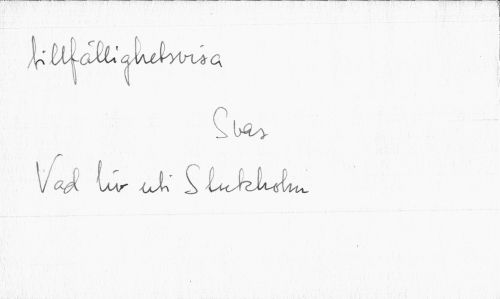 tillfällighetsvisa
Svas
Vad liv uti Stockholm